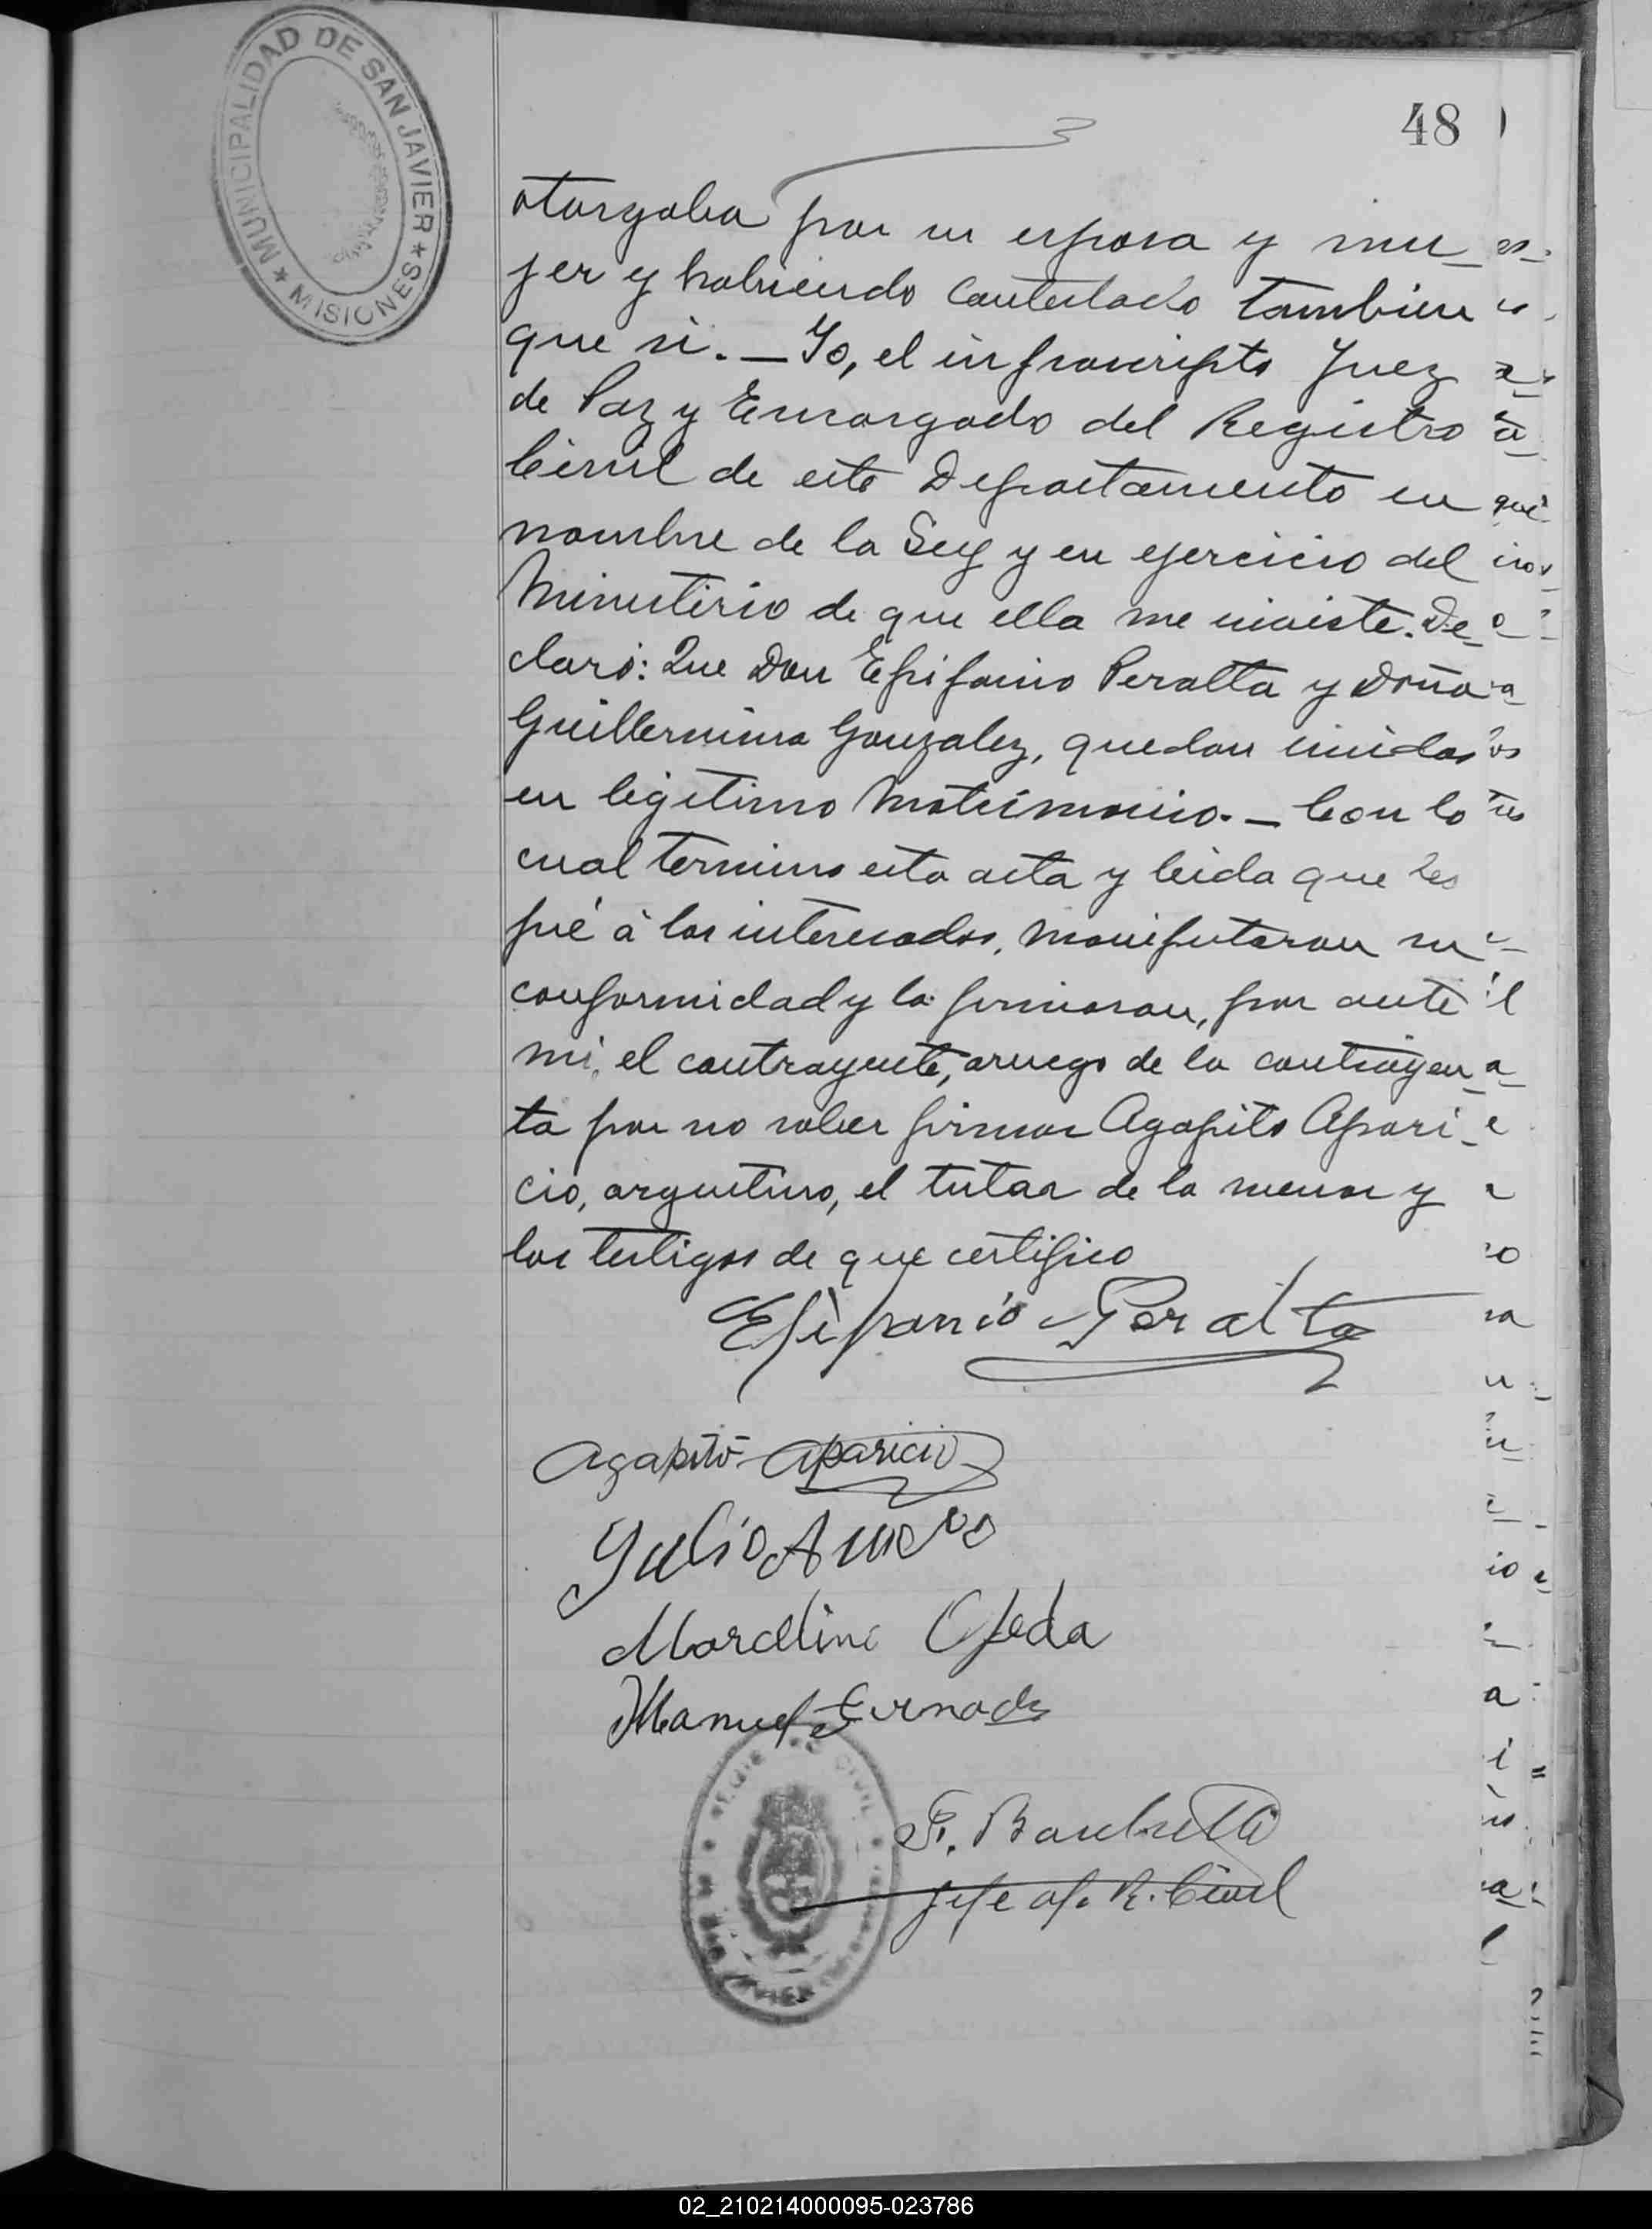 MUNICIPALIDAD DE SAN JAVIER
* MISIONES *
48
otorgaba por su esposa y mu_
jer y habiendo contestado tambien
que si. _ Yo, el infrascripto Juez
de Paz y Encargado del Registro
Civil de este Departamento en
nombre de la Ley y en ejercicio del
Ministerio de que ella me inviste. De_
claro: Que Don Epifanio Peralta y Doña
Guillermina Gonzalez, quedan unidos
en legitimo Matrimonio. _ Con lo
cual termino esta acta y leida que les
fué á los interesados, manifestaron su
conformidad y la firmaron, por ante
mi, el contrayente, a ruego de la contrayen_
ta por no saber firmar Agapito Apari_
cio, argentino, el tutor de la menor y
los testigos de que certifico
Epifanio Peralta
Agapito Aparicio
Julio
Marcelino Ojeda
Manuel
F.
Jefe of. R. Civil
02_210214000095-023786